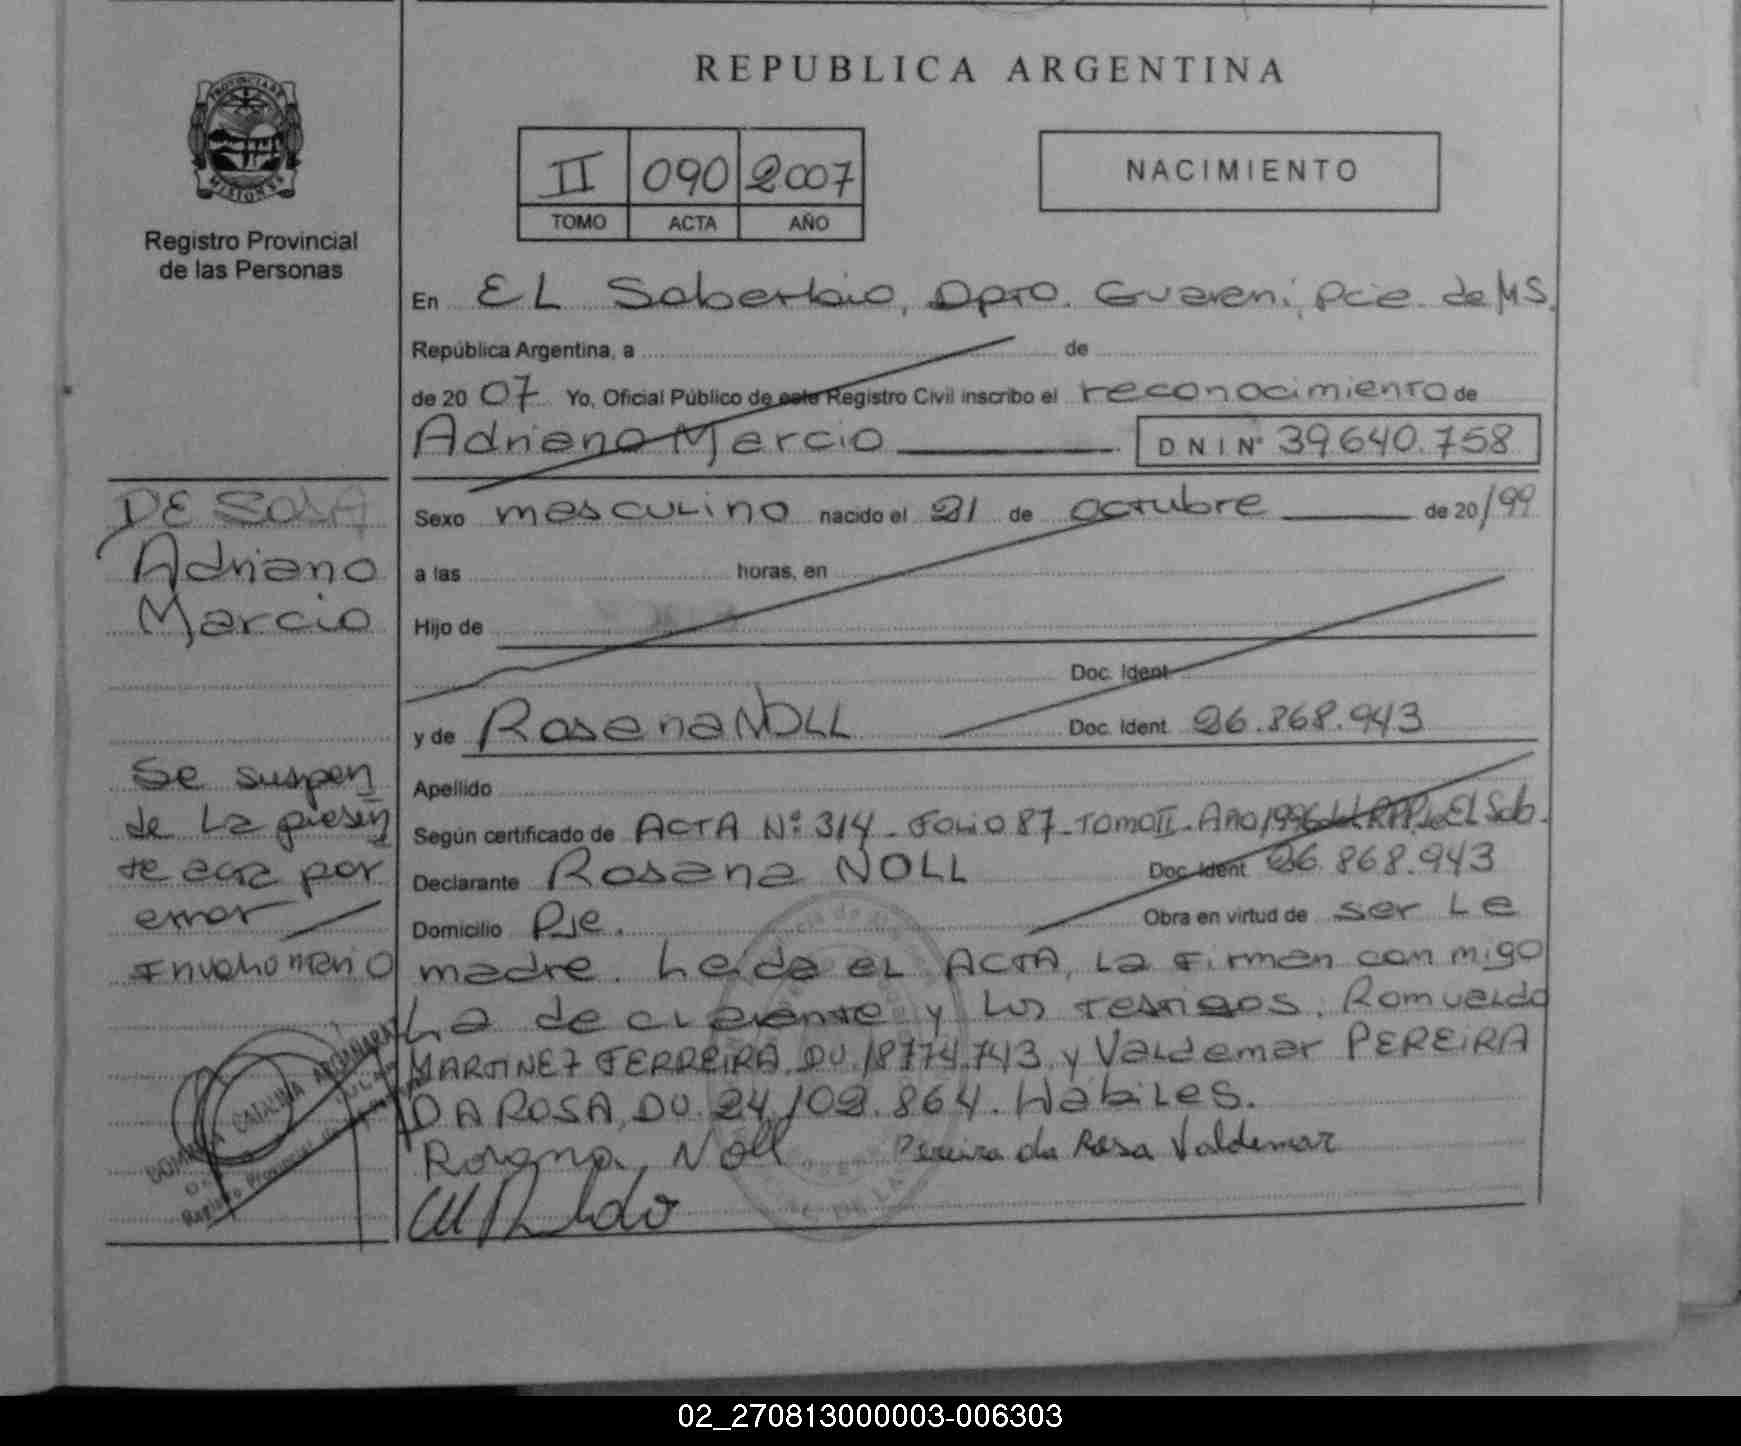 REPUBLICA ARGENTINA
PROVINCIA DE
MISIONES
Registro Provincial
de las Personas
II 090 2007
TOMO ACTA AÑO
NACIMIENTO
En EL Soberbio, Dpto. Guarani, Pcia. de MS.
República Argentina, a de
de 20 07 Yo, Oficial Público de este Registro Civil inscribo el reconocimiento de
Adriano Marcio D N I Nº 39.640.758
DE SOSA
Adriano
Marcio
Sexo masculino nacido el 21 de octubre de 20/99
a las horas, en
Hijo de
Doc. Ident
y de Rosana NOLL Doc. Ident. 26.868.943
Se suspen
de La presen
te acta por
error
Involuntario
Apellido
Según certificado de ACTA Nº 314 - FOLIO 87 - TOMO II - AÑO/1996 del RPP de EL Sob.
Declarante Rosana NOLL Doc. Ident 26.868.943
Domicilio Pje. Obra en virtud de ser La
madre. Leida el ACTA, La Firman con migo
La declarante y Los testigos. Romualdo
MARTINEZ FERREIRA DU. 18774.743 y Valdemar PEREIRA
DA ROSA, DU. 24/02.864. Habiles.
Rosana, Noll Pereira da Rosa Valdemar
DOMINGA CATALINA
Registro Provincial
02_270813000003-006303